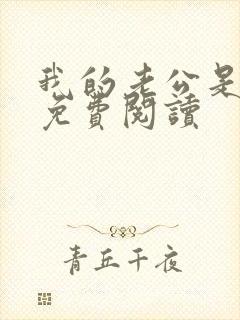 我的老公是
免費閱讀
青丘千夜